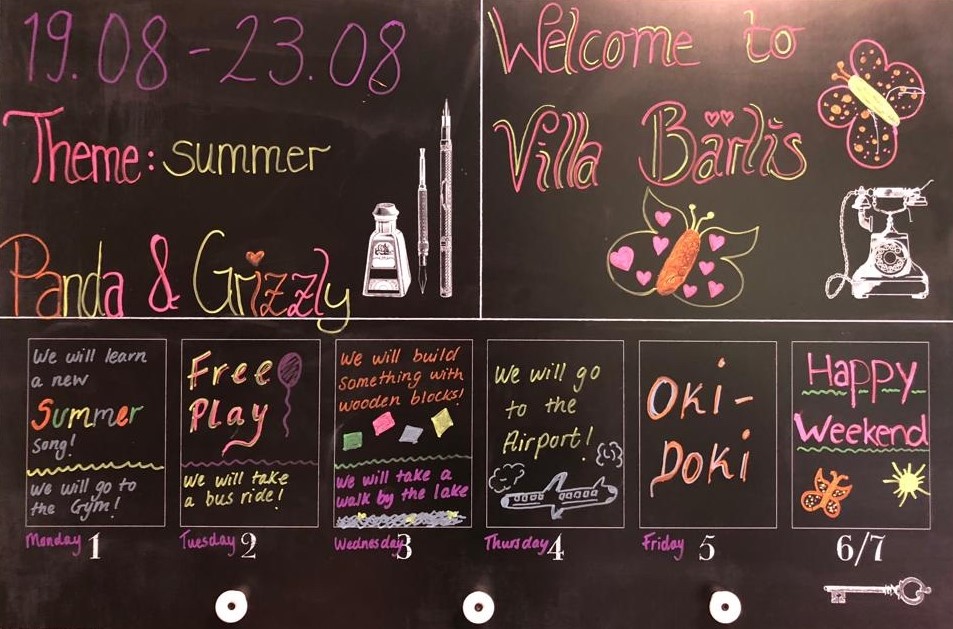 19.08 - 23.08
Theme: summer
Panda & Grizzly
Welcome to
Villa Bärlis
We will learn
a new
Summer
song!
We will go to
the Gym!
Monday 1
Free
Play
We will take
a bus ride!
Tuesday 2
We will build
something with
wooden blocks!
We will take a
walk by the lake
Wednesday 3
We will go
to the
Airport!
Thursday 4
Oki-
Doki
Friday 5
Happy
Weekend
6/7